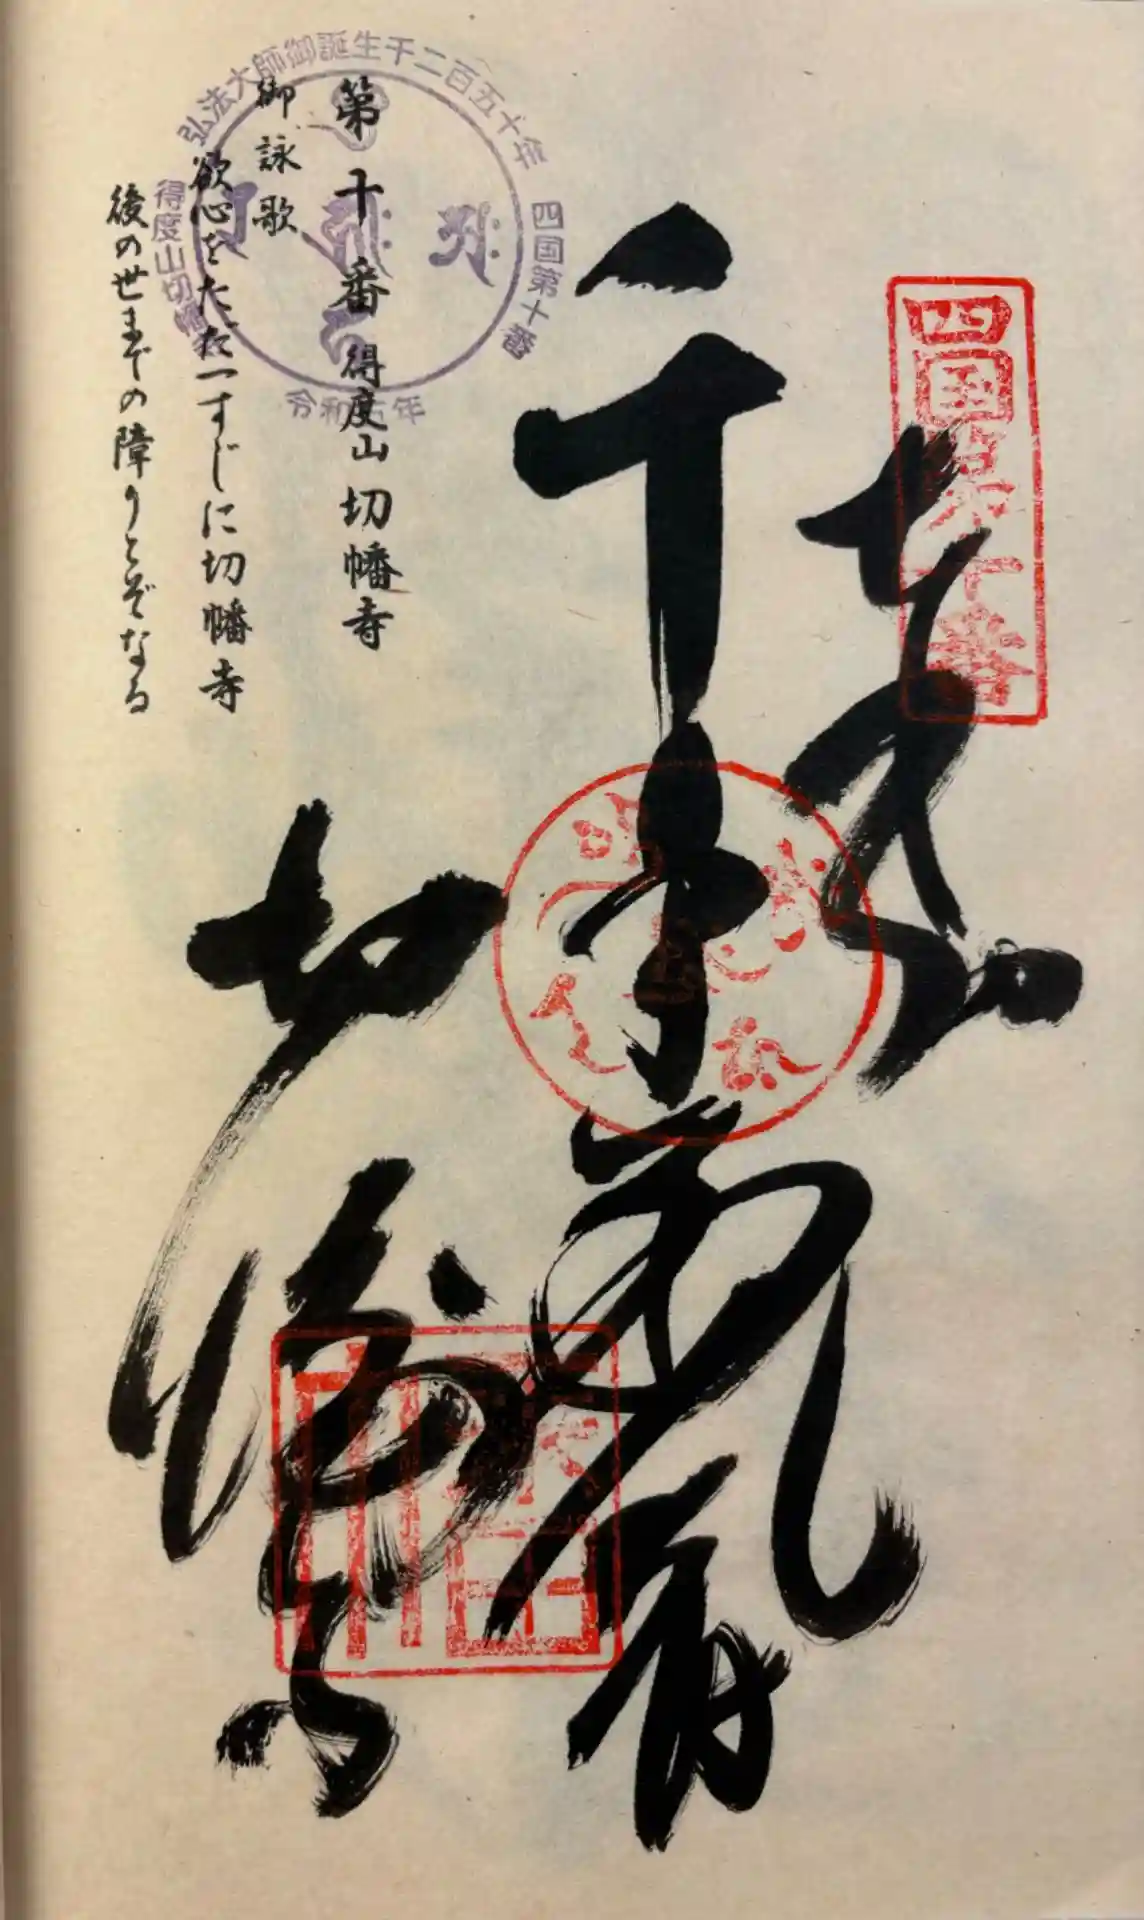 四国第十番
奉
千手尊
切幡寺
弘法大師御誕生千二百五十年
四国第十番
得度山切幡寺
令和五年
第十番 得度山 切幡寺
御詠歌
欲心をただ一すじに切幡寺
後の世までの障りとぞなる